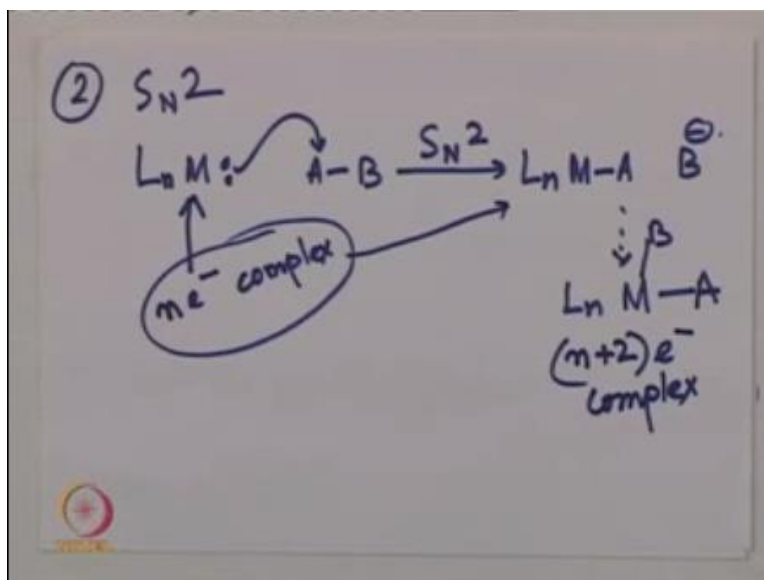 ② SN2
LnM: A-B SN2 LnM-A B⊖
ne⁻ complex
B
Ln M-A
(n+2)e⁻
complex